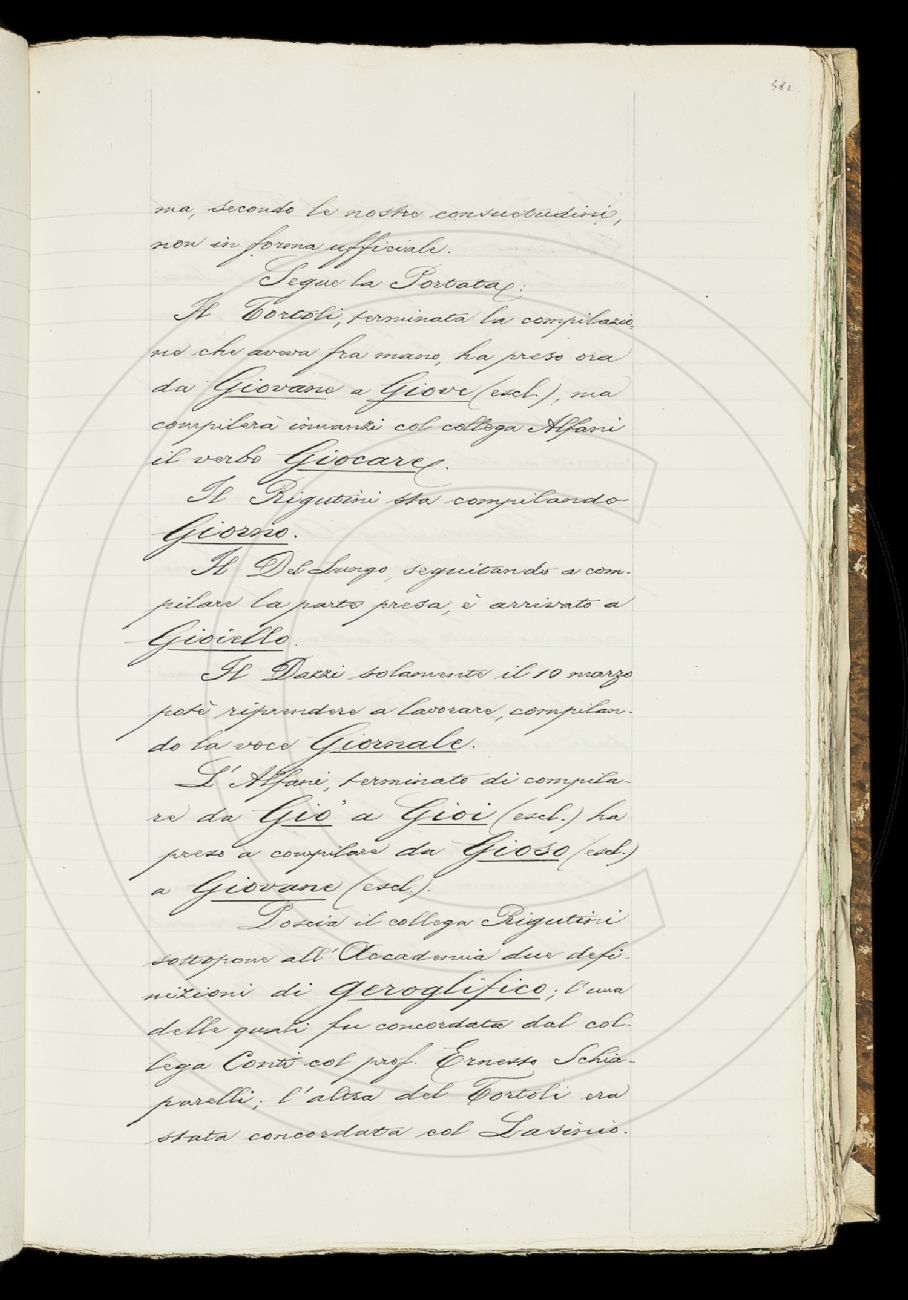 ma, secondo le nostre consuetudini,
non in forma ufficiale.
Segue la Portata:
Il Tortoli, terminata la compilazio-
ne che aveva fra mano, ha preso ora
da Giovane a Giove (escl.), ma
compilerà innanzi col collega Alfani
il verbo Giocare.
Il Rigutini sta compilando
Giorno.
Il Del Lungo, seguitando a com-
pilare la parte presa, è arrivato a
Gioiello.
Il Dazzi solamente il 10 marzo
potè riprendere a lavorare, compilan-
do la voce Giornale.
L'Alfani, terminato di compila-
re da Gio' a Gioi (escl.) ha
preso a compilare da Gioso (escl.)
a Giovane (escl.).
Poscia il collega Rigutini
sottopone all'Accademia due defi-
nizioni di geroglifico; l'una
delle quali fu concordata dal col-
lega Conti col prof. Ernesto Schia-
parelli; l'altra del Tortoli era
stata concordata col Lasinio.